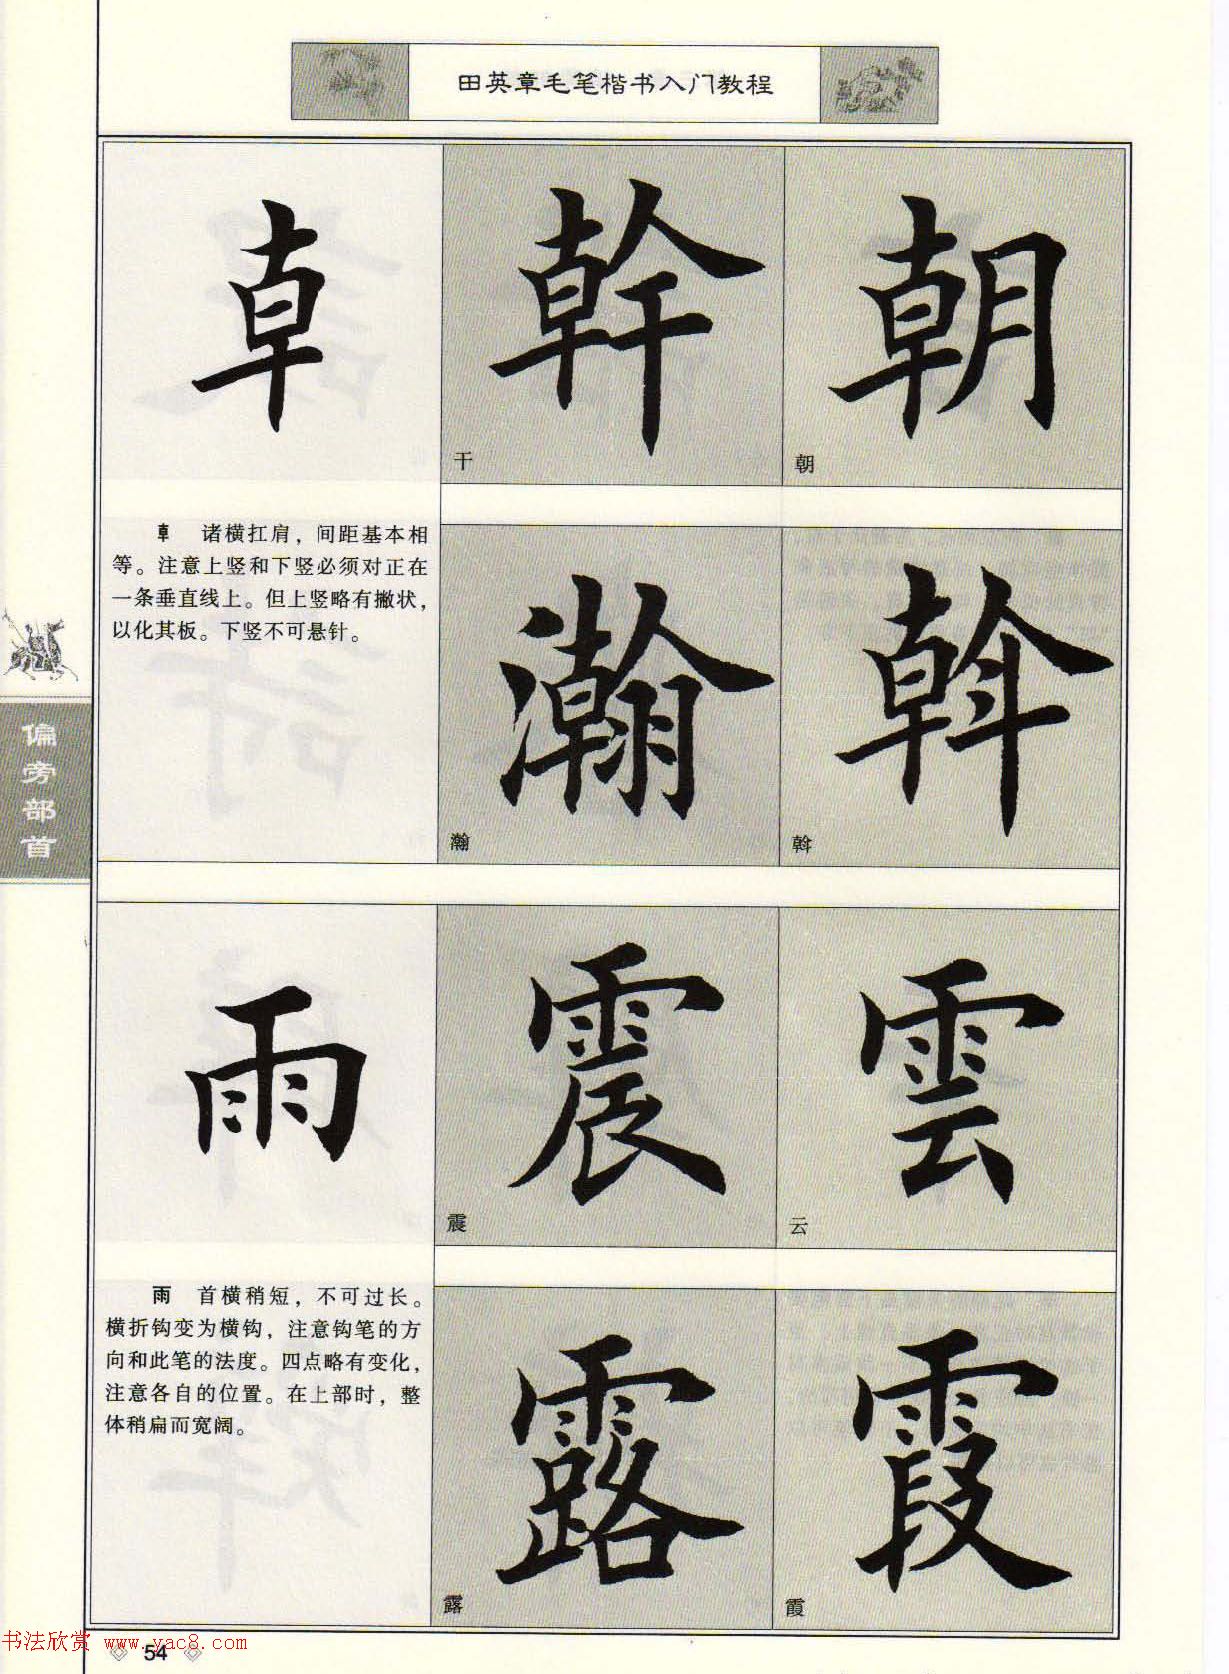 田英章毛笔楷书入门教程
幹
朝
干
朝
諸横扛肩，间距基本相
等。注意上竖和下竖必须对正在
一条垂直线上。但上竖略有撇状，
以化其板。下竖不可悬针。
瀚
斡
瀚
斡
偏旁部首
雨
震
雲
震
云
雨 首横稍短，不可过长。
横折钩变为横钩，注意钩笔的方
向和此笔的法度。四点略有变化，
注意各自的位置。在上部时，整
体稍扁而宽阔。
露
霞
露
霞
书法欣赏 www.yac8.com
54